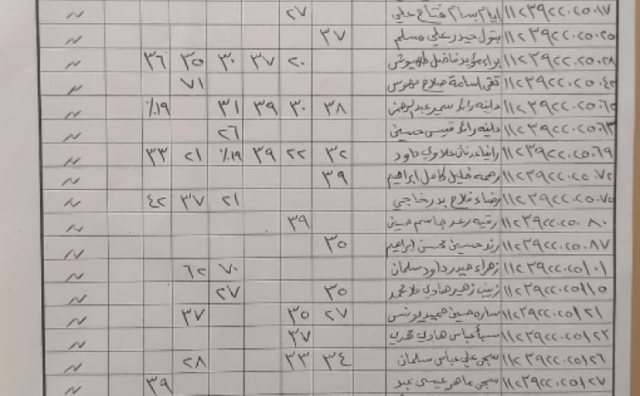 ١١٢٣٩٢٢٠٢٥٠١٧ فتاح علي ٢٧
١١٢٣٩٢٢٠٢٥٠٢٥ بتول حيدر علي مسلم ٣٧
١١٢٣٩٢٢٠٢٥٠٢٨ براء مؤيد فاضل ٢٠ ٣٧ ٣٠ ٣٥ ٣٦
١١٢٣٩٢٢٠٢٥٠٤٥ تقى اسامة صلاح ٧١
١١٢٣٩٢٢٠٢٥٠٦٥ دانيه رائد سمير عبدالرحمن ٣٨ ٣٠ ٣٩ ٣١ ١٩٪
١١٢٣٩٢٢٠٢٥٠٦٣ دانيه رائد قيس حسين ٢٦
١١٢٣٩٢٢٠٢٥٠٦٩ رانيا عدنان علاوي داود ٣٢ ٢٢ ٣٩ ١٩٪ ٢١ ٣٣
١١٢٣٩٢٢٠٢٥٠٧٢ رحمه خليل كامل ابراهيم ٣٩
١١٢٣٩٢٢٠٢٥٠٧٥ رضاء فلاح بدر خاجي ٢١ ٣٧ ٤٢
١١٢٣٩٢٢٠٢٥٠٨٠ رقيه رعد جاسم حسين ٣٩
١١٢٣٩٢٢٠٢٥٠٨٧ رند حسين محسن ابراهيم ٣٥
١١٢٣٩٢٢٠٢٥١٠١ زهراء حيدر داود سلمان ٧٠ ٦٢
١١٢٣٩٢٢٠٢٥١١٥ زينب زهير هادي ملا محمد ٣٥ ٢٧
١١٢٣٩٢٢٠٢٥١٢١ ساره حسين حميد يونس ٢٧ ٣٥ ٣٧
١١٢٣٩٢٢٠٢٥١٢٢ سبأ عباس هادي ٣٧
١١٢٣٩٢٢٠٢٥١٢٦ سجى علي عباس سلمان ٣٤ ٣٣ ٢٨
١١٢٣٩٢٢٠٢٥١٢٧ سجى ماهر عيسى عبد ٣٩